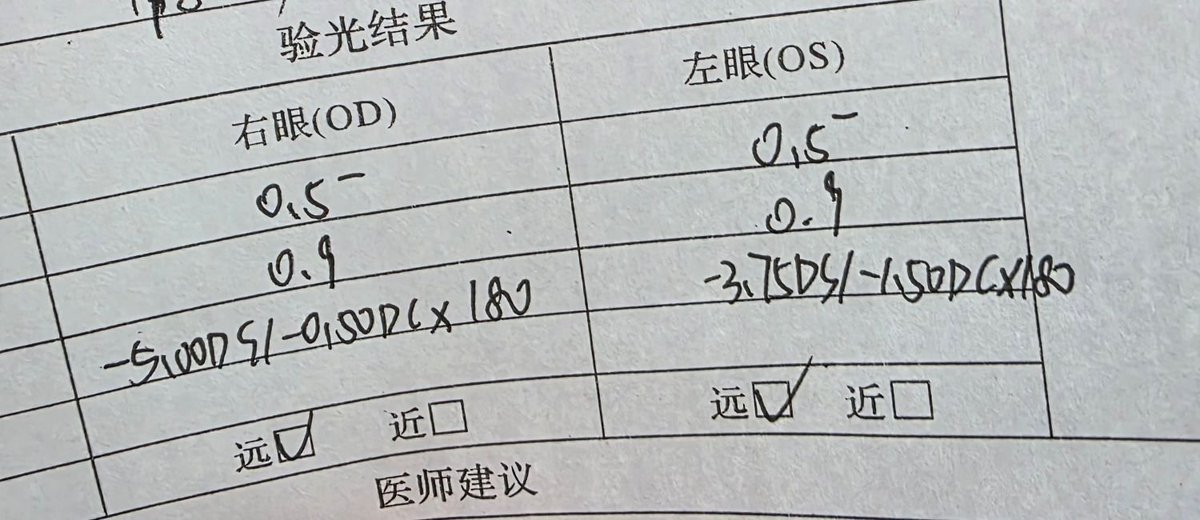 验光结果
右眼(OD) 左眼(OS)
0.5- 0.5-
0.9 0.9
-5.00DS/-0.50DC×180 -3.75DS/-1.50DC×180
远☑ 近□ 远☑ 近□
医师建议